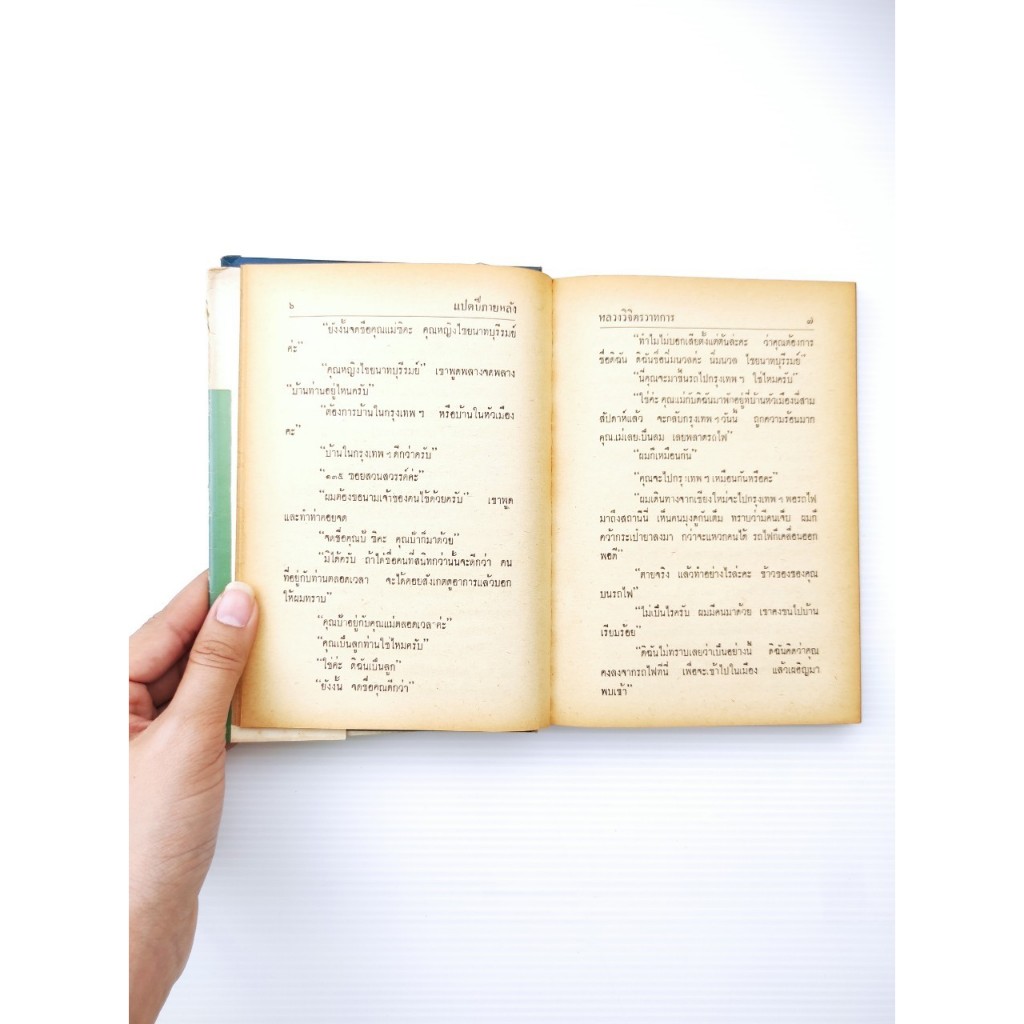 ๖ แปดปีภายหลัง
"ยังงั้นจดชื่อคุณแม่ซิคะ คุณหญิงไชยนาทบุรีรมย์
ค่ะ"
"คุณหญิงไชยนาทบุรีรมย์" เขาพูดพลางจดพลาง
"บ้านท่านอยู่ไหนครับ"
"ต้องการบ้านในกรุงเทพ ฯ หรือบ้านในหัวเมือง
คะ"
"บ้านในกรุงเทพ ฯ ดีกว่าครับ"
"๑๓๕ ซอยสวนสวรรค์ค่ะ"
"ผมต้องขอนามเจ้าของคนไข้ด้วยครับ" เขาพูด
และทำท่าคอยจด
"จดชื่อคุณป้า ซิคะ คุณป้าก็มาด้วย"
"มิได้ครับ ถ้าได้ชื่อคนที่สนิทกว่านั้นจะดีกว่า คน
ที่อยู่กับท่านตลอดเวลา จะได้คอยสังเกตดูอาการแล้วบอก
ให้ผมทราบ"
"คุณป้าอยู่กับคุณแม่ตลอดเวลาค่ะ"
"คุณเป็นลูกท่านใช่ไหมครับ"
"ใช่ค่ะ ดิฉันเป็นลูก"
"ยังงั้น จดชื่อคุณดีกว่า"
หลวงวิจิตรวาทการ ๗
"ทำไมไม่บอกเสียตั้งแต่ต้นล่ะคะ ว่าคุณต้องการ
ชื่อดิฉัน ดิฉันชื่อนิ่มนวลค่ะ นิ่มนวล ไชยนาทบุรีรมย์"
"นี่คุณจะมาขึ้นรถไปกรุงเทพ ฯ ใช่ไหมครับ"
"ใช่ค่ะ คุณแม่กับดิฉันมาพักอยู่ที่บ้านหัวเมืองนี่สาม
สัปดาห์แล้ว จะกลับกรุงเทพ ฯ วันนี้ ถูกความร้อนมาก
คุณแม่เลยเป็นลม เลยพลาดรถไฟ"
"ผมก็เหมือนกัน"
"คุณจะไปกรุงเทพ ฯ เหมือนกันหรือคะ"
"ผมเดินทางจากเชียงใหม่จะไปกรุงเทพ ฯ พอรถไฟ
มาถึงสถานีนี่ เห็นคนมุงดูกันเต็ม ทราบว่ามีคนเจ็บ ผมก็
คว้ากระเป๋ายาลงมา กว่าจะแหวกคนได้ รถไฟก็เคลื่อนออก
พอดี"
"ตายจริง แล้วทำอย่างไรล่ะคะ ข้าวของของคุณ
บนรถไฟ"
"ไม่เป็นไรครับ ผมมีคนมาด้วย เขาคงขนไปบ้าน
เรียบร้อย"
"ดิฉันไม่ทราบเลยว่าเป็นอย่างนี้ ดิฉันคิดว่าคุณ
คงลงจากรถไฟที่นี่ เพื่อจะเข้าไปในเมือง แล้วเผอิญมา
พบเข้า"